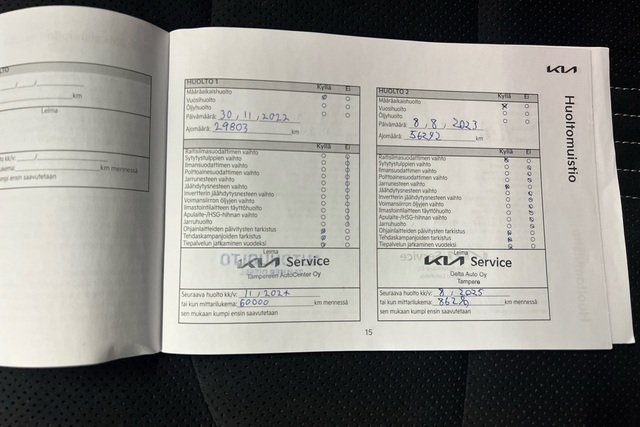 km
Leima
km mennessä
KIA
Huoltomuistio
HUOLTO 1
Kyllä Ei
Määräaikaishuolto
Vuosihuolto
Öljyhuolto
Päivämäärä: 30, 11, 2022
Ajomäärä: 29803 km
Kyllä Ei
Raitisilmasuodattimen vaihto
Sytytystulppien vaihto
Ilmansuodattimen vaihto
Polttoainesuodattimen vaihto
Jarrunesteen vaihto
Jäähdytysnesteen vaihto
Invertterin jäähdytysnesteen vaihto
Voimansiirron öljyjen vaihto
Ilmastointilaitteen täyttöhuolto
Apulaite-/HSG-hihnan vaihto
Jarruhuolto
Ohjainlaitteiden päivitysten tarkistus
Tehdaskampanjoiden tarkistus
Tiepalvelun jatkuminen vuodeksi
Leima
KIA Service
Tampereen AutoCenter Oy
Seuraava huolto kk/v: 11, 2024
tai kun mittarilukema: 60000 km mennessä
sen mukaan kumpi ensin saavutetaan
HUOLTO 2
Kyllä Ei
Määräaikaishuolto
Vuosihuolto
Öljyhuolto
Päivämäärä: 8, 8, 2023
Ajomäärä: 56292 km
Kyllä Ei
Raitisilmasuodattimen vaihto
Sytytystulppien vaihto
Ilmansuodattimen vaihto
Polttoainesuodattimen vaihto
Jarrunesteen vaihto
Jäähdytysnesteen vaihto
Invertterin jäähdytysnesteen vaihto
Voimansiirron öljyjen vaihto
Ilmastointilaitteen täyttöhuolto
Apulaite-/HSG-hihnan vaihto
Jarruhuolto
Ohjainlaitteiden päivitysten tarkistus
Tehdaskampanjoiden tarkistus
Tiepalvelun jatkuminen vuodeksi
Leima
KIA Service
Delta Auto Oy
Tampere
Seuraava huolto kk/v: 8, 2025
tai kun mittarilukema: km mennessä
sen mukaan kumpi ensin saavutetaan
15